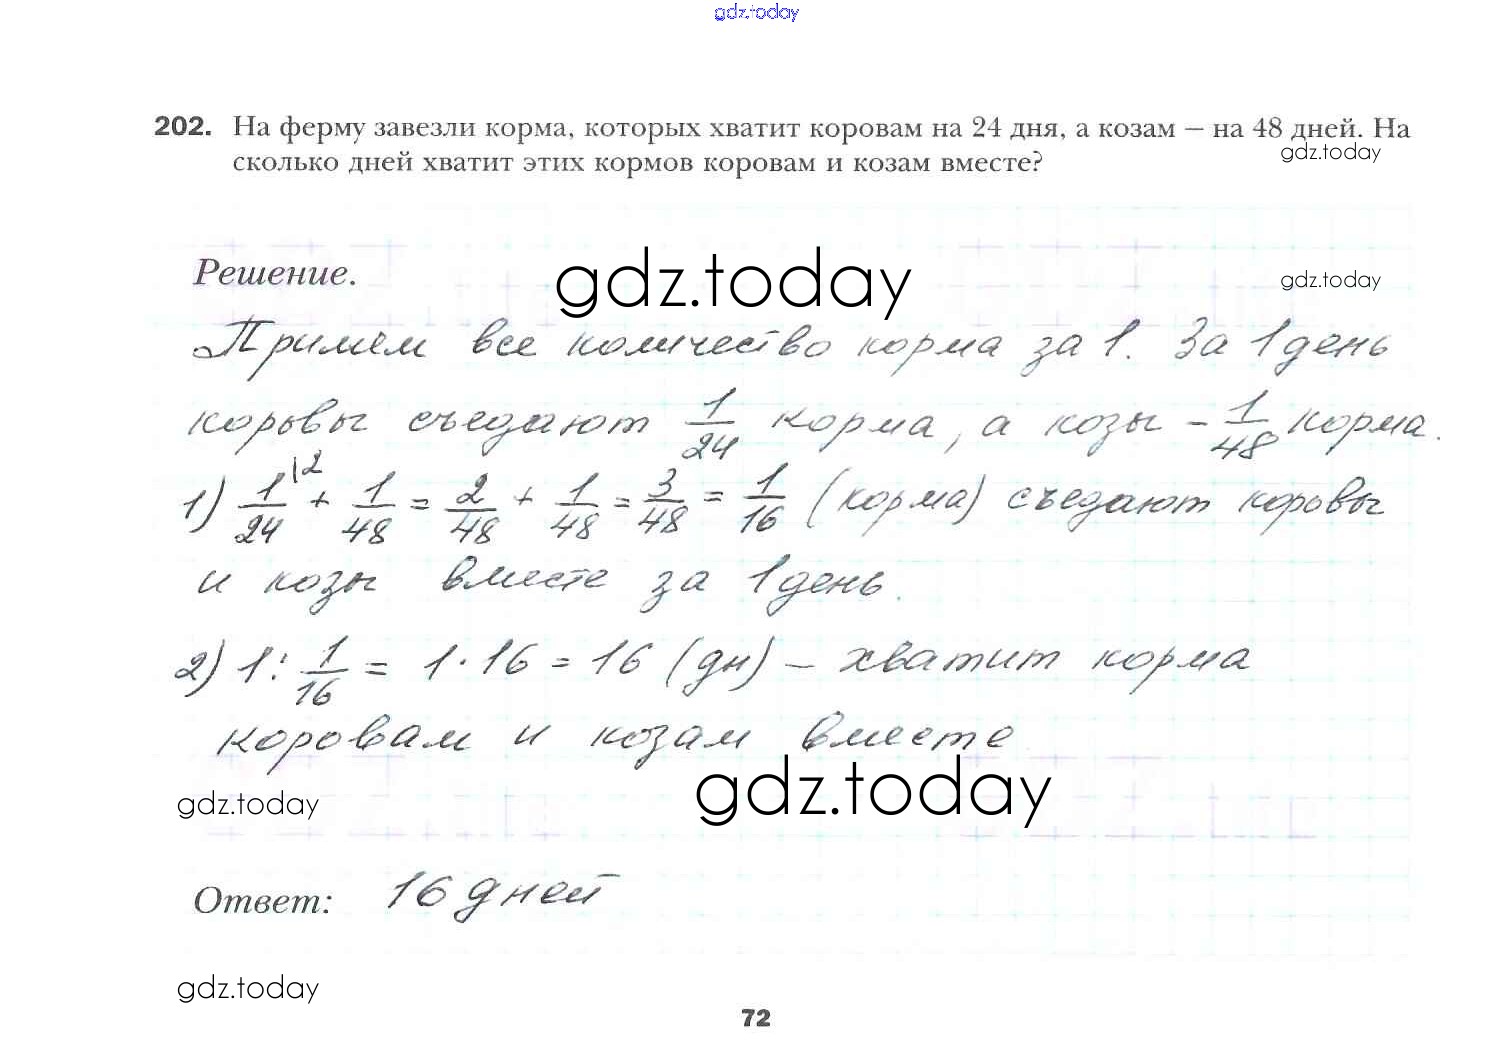 gdz.today
202. На ферму завезли корма, которых хватит коровам на 24 дня, а козам – на 48 дней. На
gdz.today
сколько дней хватит этих кормов коровам и козам вместе?
Решение.
gdz.today
gdz.today
Примем все количество корма за 1. За 1 день
коровы съедают 1/24 корма, а козы - 1/48 корма.
1) 1/24 |2 + 1/48 = 2/48 + 1/48 = 3/48 = 1/16 (корма) съедают коровы
и козы вместе за 1 день.
2) 1 : 1/16 = 1 · 16 = 16 (дн) – хватит корма
коровам и козам вместе
gdz.today
gdz.today
Ответ: 16 дней
gdz.today
72